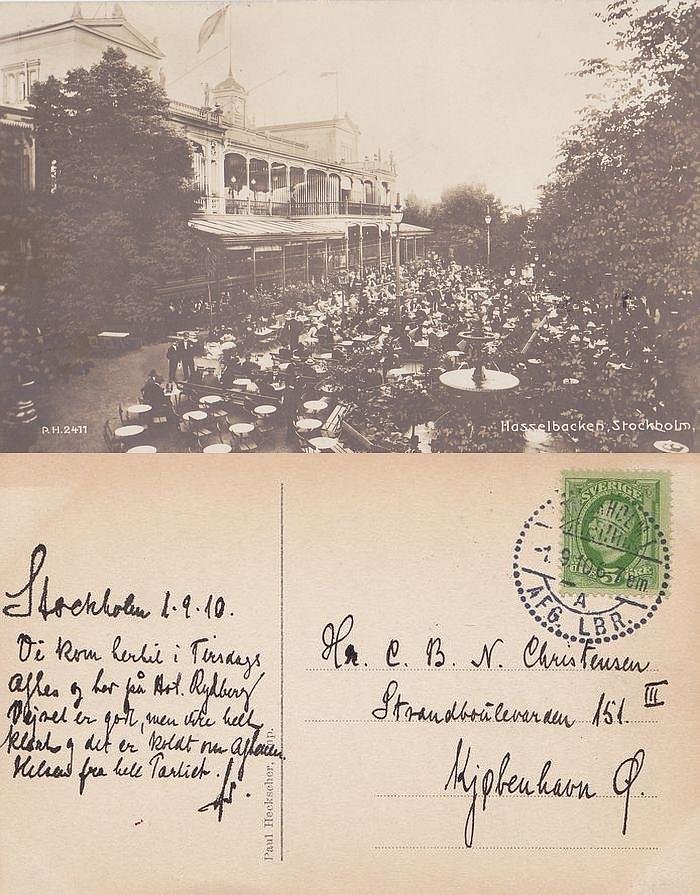 P.H. 2411
Hasselbacken, Stockholm.
SVERIGE
5 ÖRE
1.9.10 6-7 em
A
AFG. LBR.
Stockholm 1.9.10.
Vi kom hertil i Tirsdags
Aftes og bor på Hot. Rydberg
Vejret er godt, men ikke helt
klart og det er koldt om Aftenen.
Hilsen fra hele Partiet.
Paul Heckscher, Imp.
Hr. C. B. N. Christensen
Strandboulevarden 151. III
Kjøbenhavn Ø.